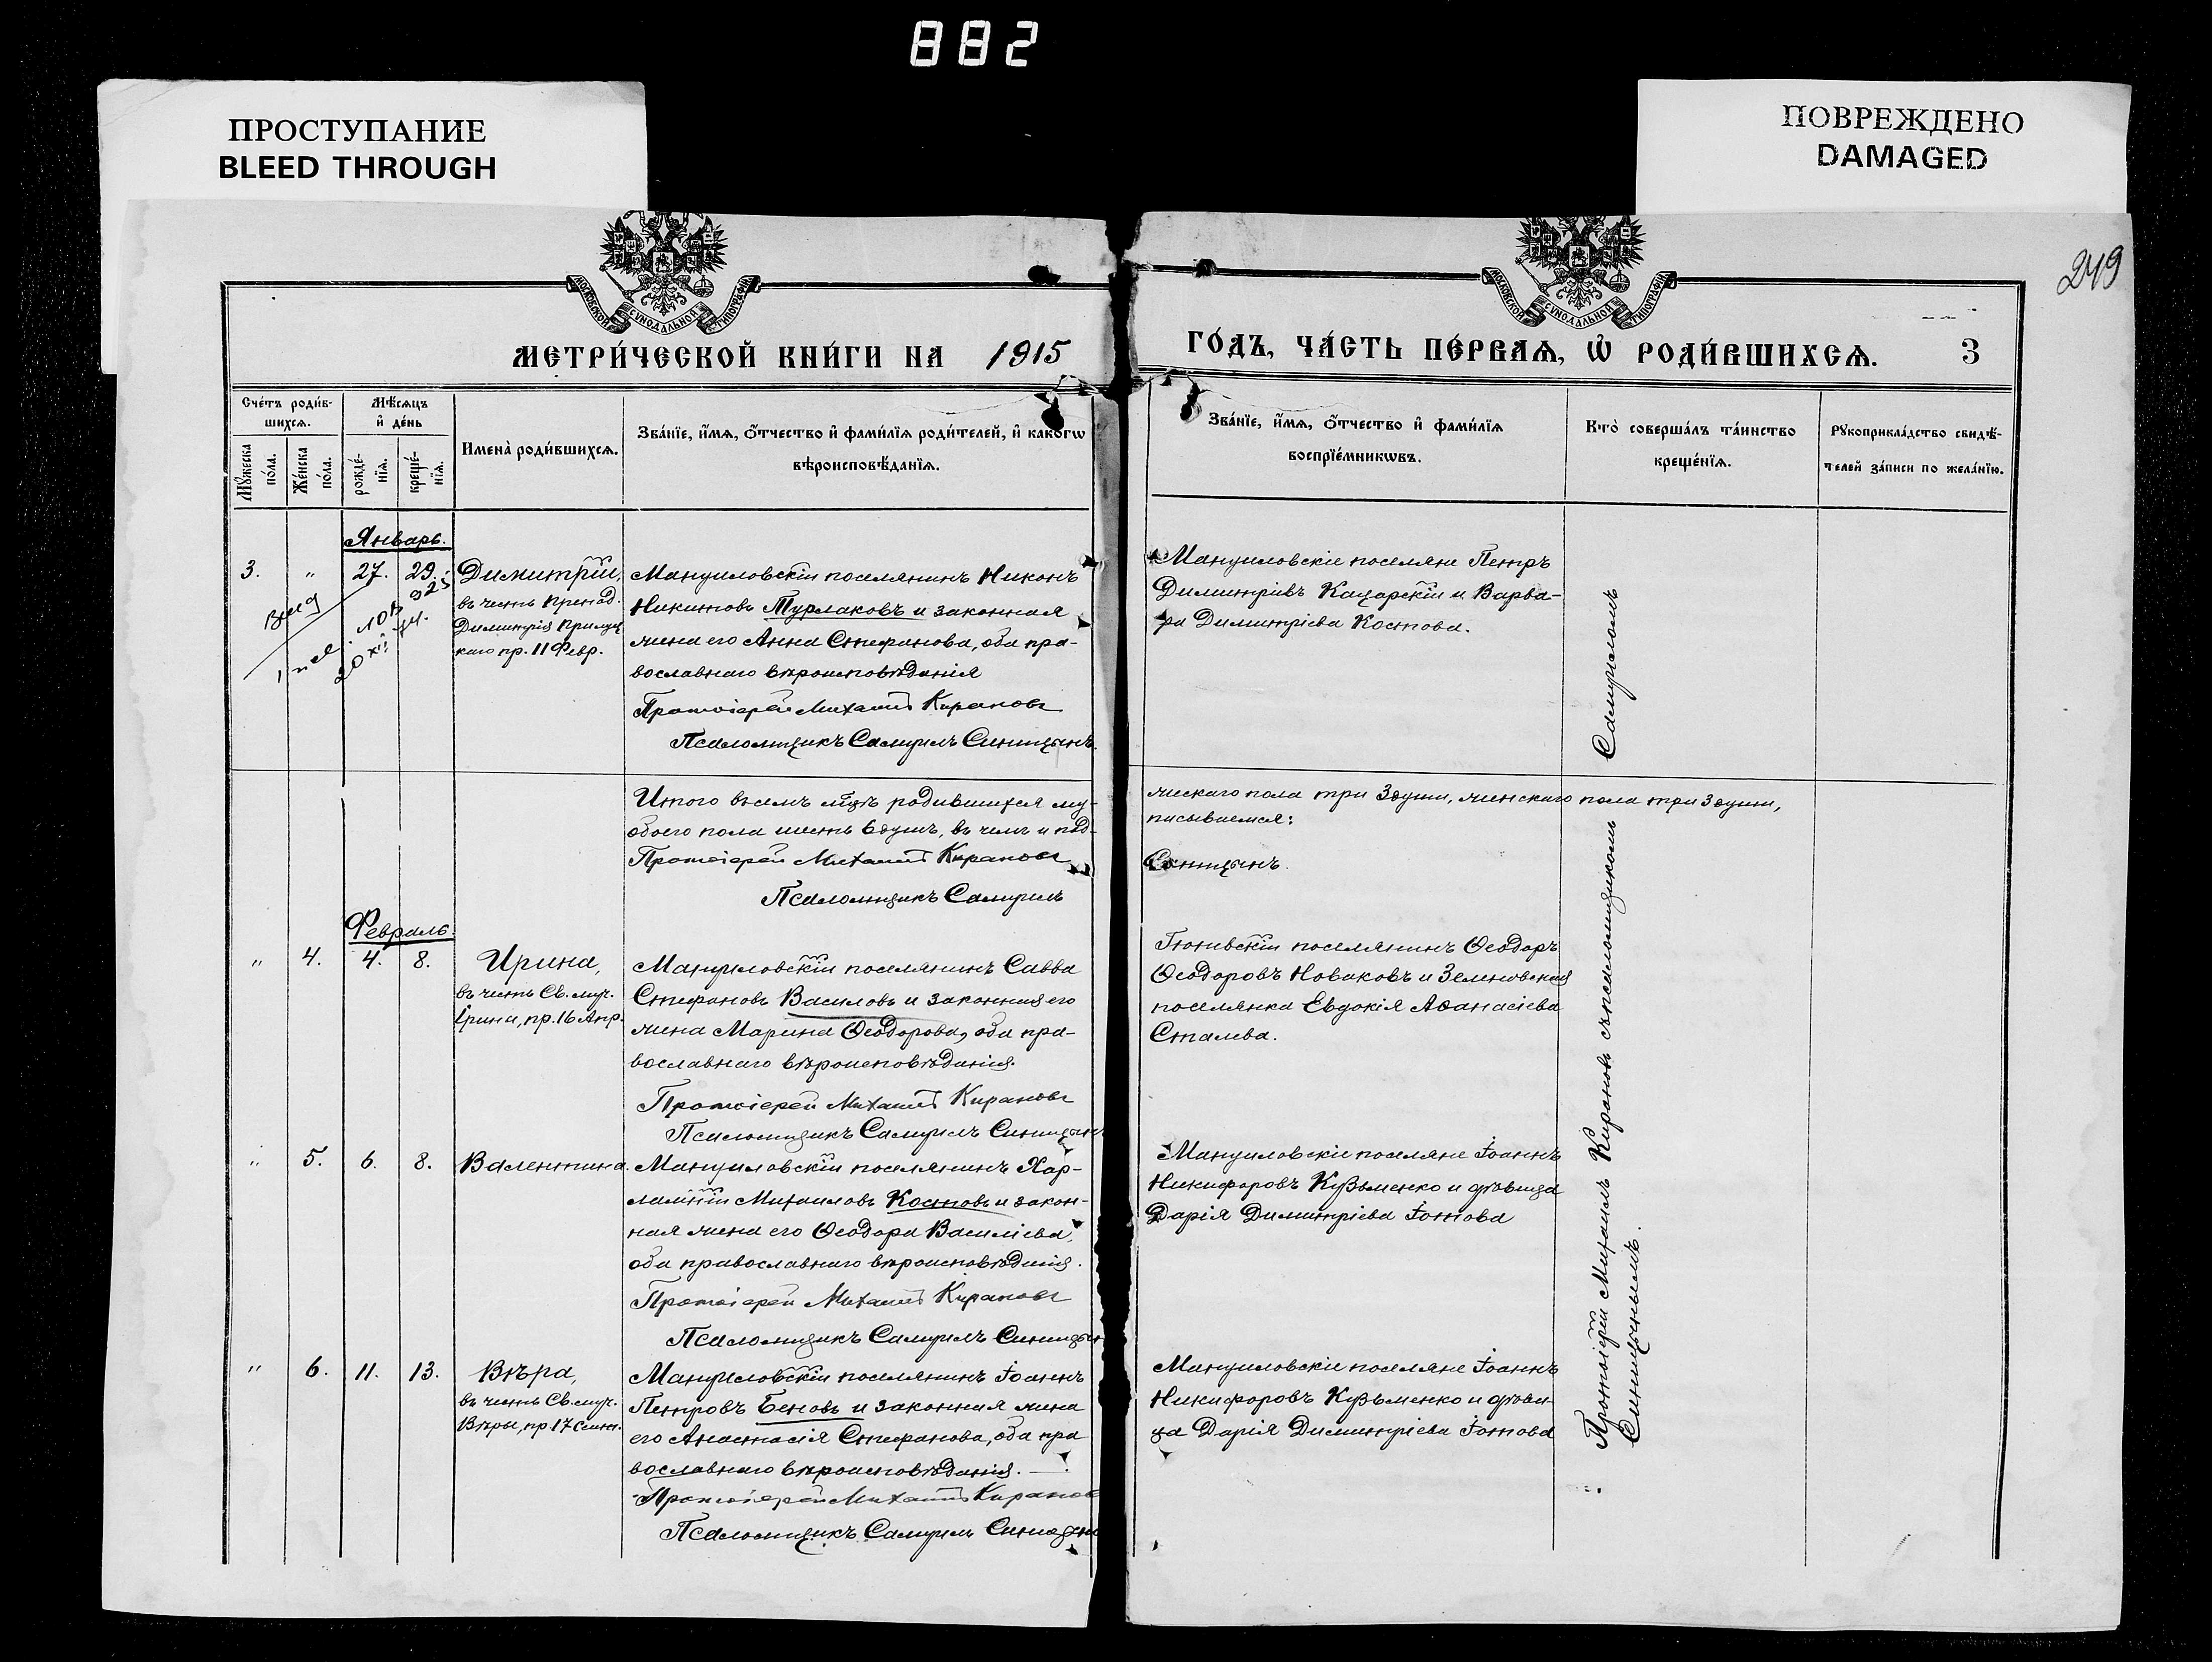 882
ПРОСТУПАНИЕ
BLEED THROUGH
ПОВРЕЖДЕНО
DAMAGED
249
МОСКОВСКОЙ СУНОДАЛЬНОЙ ТИПОГРАФІИ
МОСКОВСКОЙ СУНОДАЛЬНОЙ ТИПОГРАФІИ
МЕТРИ́ЧЕСКОЙ КНИ́ГИ НА 1915
ГО́ДЪ, ЧА́СТЬ ПЕ́РВАѦ, Ѡ҆ РОДИ́ВШИХСѦ. 3
Сче́тъ роди́в-
шихсѧ.
Мѣ́сѧцъ
и҆ де́нь
Мꙋ́жеска
по́ла.
Же́нска
по́ла.
рожде́-
нїѧ.
креще́-
нїѧ.
Имена̀ роди́вшихсѧ.
Зва́нїе, и҆́мѧ, ѻ҆́тчество и҆ фами́лїѧ роди́телей, и҆ како́гѡ
вѣроисповѣ́данїѧ.
Зва́нїе, и҆́мѧ, ѻ҆́тчество и҆ фами́лїѧ
воспрїе́мникѡвъ.
Кто̀ соверша́лъ та́инство
креще́нїѧ.
Рꙋкоприкла́дство свидѣ́-
телей за́писи по жела́нїю.
Январь.
3. " 27. 29. Димитрій,
въ честь Препод.
Димитрія Прилуц
каго пр. 11 Февр.
Мануиловскій поселянинъ Никонъ
Никитовъ Турлаковъ и законная
жена его Анна Стефанова, оба пра-
вославнаго вѣроисповѣданія
Протоіерей Михаилъ Кирановъ
Псаломщикъ Самуилъ Синицынъ.
Мануиловскіе поселяне Петръ
Димитріевъ Кацарскій и Варва-
ра Димитріева Костова.
Итого въ семъ м҃цѣ родившихся му-
обоего пола шесть 6 душъ, въ чемъ и под-
Протоіерей Михаилъ Кирановъ
Псаломщикъ Самуилъ
жескаго пола три 3 души, женскаго пола три 3 души,
писываемся:
Синицынъ.
Февраль.
" 4. 4. 8. Ирина,
въ честь Св. муч.
Ірины, пр. 16 Апр.
Мануиловскій поселянинъ Савва
Стефановъ Василовъ и законная его
жена Марина Ѳеодорова, оба пра-
вославнаго вѣроисповѣданія.
Протоіерей Михаилъ Кирановъ
Псаломщикъ Самуилъ Синицынъ
Ѳеодоръ
Ѳеодоровъ Новаковъ и Зеленовская
поселянка Евдокія Аѳанасіева
Сталева.
" 5. 6. 8. Валентина.
Мануиловскій поселянинъ Хар-
лампій Михаиловъ Костовъ и закон-
ная жена его Ѳеодора Василіева,
оба православнаго вѣроисповѣданія.
Протоіерей Михаилъ Кирановъ
Псаломщикъ Самуилъ Синицын
Мануиловскіе поселяне Іоаннъ
Никифоровъ Кузьменко и дѣвица
Дарія Димитріева Іотова
" 6. 11. 13. Вѣра,
въ честь Св. муч.
Вѣры, пр 17 Сент.
Мануиловскій поселянинъ Іоаннъ
Петровъ Беновъ и законная жена
его Анастасія Стефанова, оба пра
вославнаго вѣроисповѣданія.
Протоіерей Михаилъ Киранов
Псаломщикъ Самуилъ Синицын
Мануиловскіе поселяне Іоаннъ
Никифоровъ Кузьменко и дѣви-
ца Дарія Димитріева Іотова
Протоіерей Михаилъ Кирановъ съ псаломщикомъ Самуиломъ
Синицынымъ.